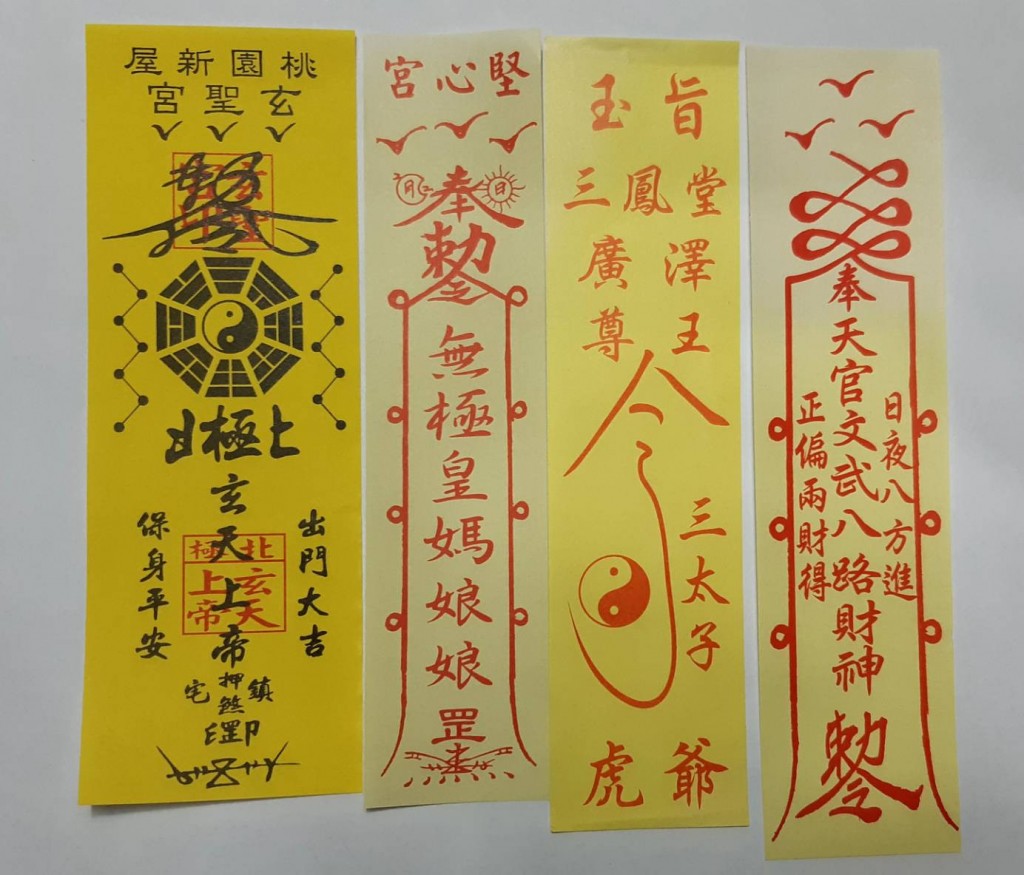 桃園新屋
玄聖宮
勅令
北極
玄天上帝
北極
玄天
上帝
出門大吉
保身平安
鎮宅
押煞
堅心宮
日
月
奉
勅令
無極皇媽娘娘
罡
玉旨
三鳳堂
廣澤
尊王
令
三太子
虎爺
奉天官文武八路財神
勅令
日夜八方進
正偏兩財得